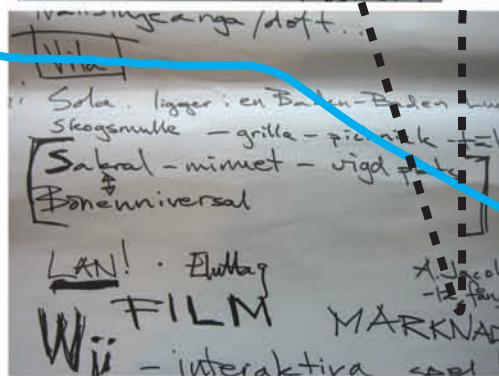 /doft...
Vila
Sola. ligger i en Baden-Baden
Skogsmulle - grilla - picknick - tält
Sakral - minnet - vigd plats
Bönenniversal
LAN! · Eluttag
A. Jacob
-12
FILM
MARKNAD
Wii - interaktiva spel